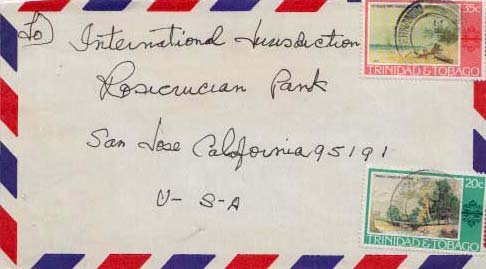 To International Jurisdiction
Rosicrucian Park
San Jose California 95191
U-S-A
35c
TRINIDAD & TOBAGO
20c
TRINIDAD & TOBAGO